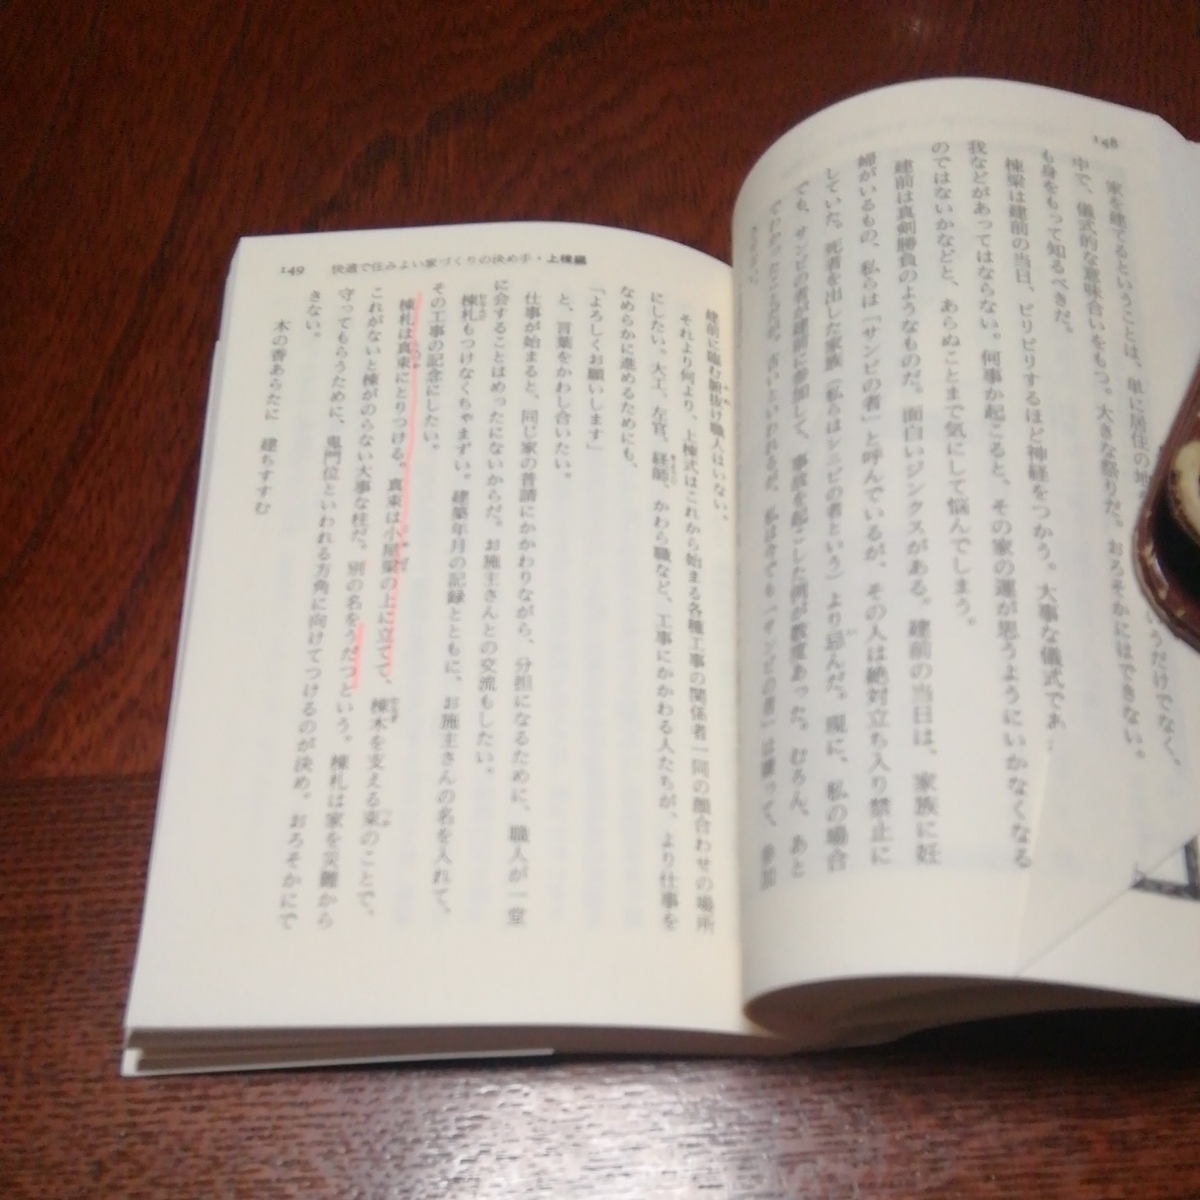 148
家を建てるということは、単に居住の
いうだけでなく、
中で、儀式的な意味合いをもつ。大きな祭りだ。おろそかにはできない。
も身をもって知るべきだ。
棟梁は建前の当日、ピリピリするほど神経をつかう。大事な儀式で
我などがあってはならない。何事か起こると、その家の運が思うようにいかなくなる
のではないかなどと、あらぬことまで気にして悩んでしまう。
建前は真剣勝負のようなものだ。面白いジンクスがある。建前の当日は、家族に妊
婦がいるもの、私らは「サンピの者」と呼んでいるが、その人は絶対立ち入り禁止に
していた。死者を出した家族（私らはシニビの者という）より忌んだ。現に、私の場合
でも、サンピの者が建前に参加して、事故を起こした例が数度あった。むろん、あと
でわかったことだが。古いといわれるが、私は今でも「サンピの者」は嫌って、参加
149
快適で住みよい家づくりの決め手・上棟編
建前に臨む腑抜け職人はいない。
それより何より、上棟式はこれから始まる各種工事の関係者一同の顔合わせの場所
にしたい。大工、左官、経師、かわら職など、工事にかかわる人たちが、より仕事を
なめらかに進めるためにも、
「よろしくお願いします」
と、言葉をかわし合いたい。
仕事が始まると、同じ家の普請にかかわりながら、分担になるために、職人が一堂
に会することはめったにないからだ。お施主さんとの交流もしたい。
棟札もつけなくちゃまずい。建築年月の記録とともに、お施主さんの名を入れて、
その工事の記念にしたい。
棟札は真束にとりつける。真束は小屋梁の上に立てて、棟木を支える束のことで、
これがないと棟がのらない大事な柱だ。別の名をうだつという。棟札は家を災難から
守ってもらうために、鬼門位といわれる方角に向けてつけるのが決め。おろそかにで
きない。
木の香あらたに　建ちすすむ